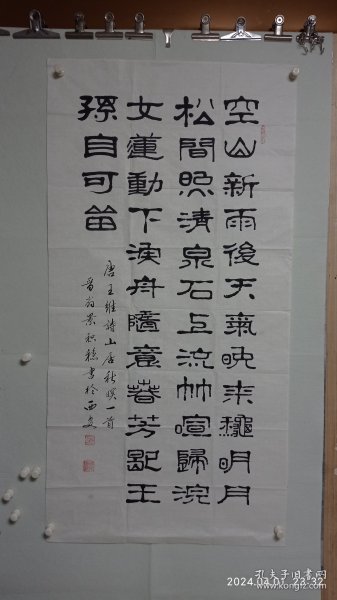 空山新雨後天氣晚来穐明月
松間照清泉石上流竹喧歸浣
女蓮動下渔舟隨意春芳歇王
孫自可留
唐王維詩山居秋暝一首
景积穗书於西安
2024.04.01 23:32
孔夫子旧书网